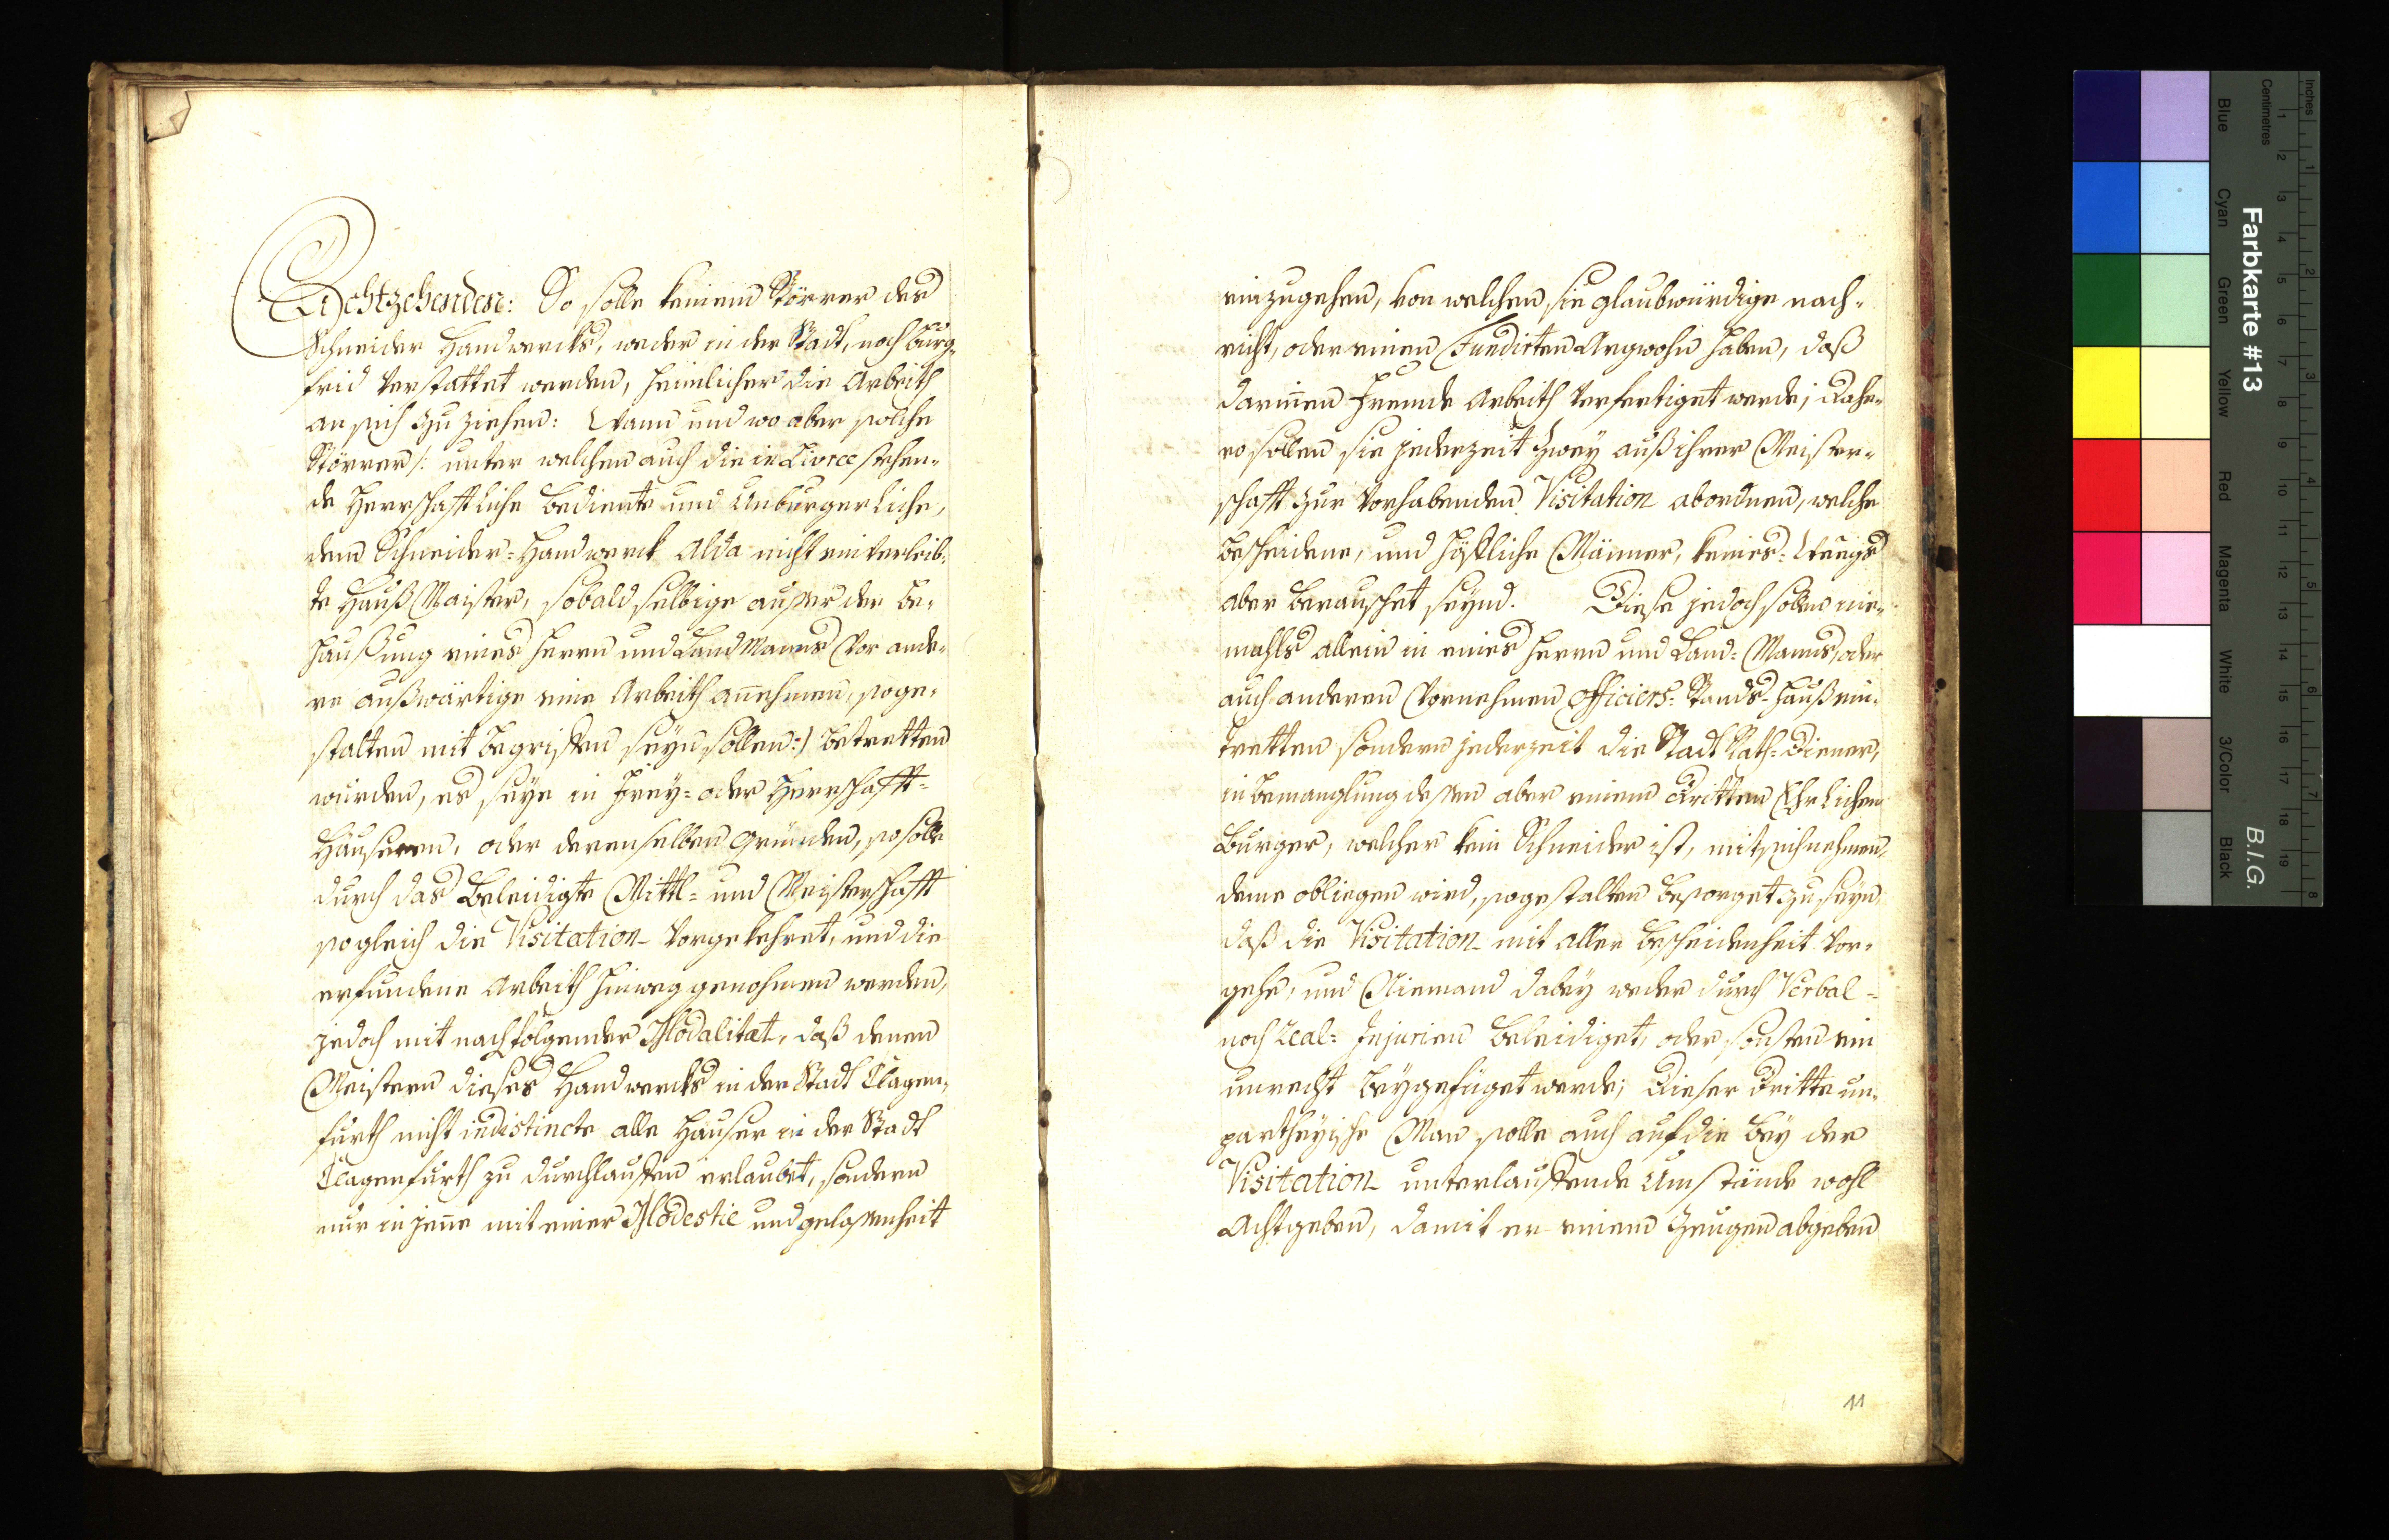 Achtzehenden: So solle keinem Störrer des
Schneider Handwercks, weder in der Stadt, noch burg-
frid verstattet werden, heimlicher die Arbeith
an sich zu ziehen: Wann und wo aber solche
Störrer /: unter welchen auch die in Livree stehen-
de Herrschafftliche bediente und Unburgerliche,
dem Schneider-Handwerck alda nicht einverleib-
te Hauß Maister, sobald selbige ausser der be-
haußung eines Herrn und Land Manns vor ande-
re außwärtige eine Arbeith annehmen, soge-
stalten mit begriffen seyn sollen :/ betretten
wurden, es seye in Frey- oder Herrschafft-
Häuseren, oder derenselben gründen, so solle
durch das beleidigte Mittl- und Meisterschafft
sogleich die Visitation vorgekehret, und die
erfundene Arbeith hinweg genohmen werden,
jedoch mit nachfolgender Modalitæt, daß denen
Meistern dieses Handwercks in der Stadt Clagen-
furth nicht indistincte alle Häuser in der Stadt
Clagenfurth zu durchlauffen erlaubet, sondern
nur in jene mit einer Modestie und gelassenheit
einzugehen, von welchen sie glaubwürdige nach-
richt, oder einen Fundirten Argwohn haben, daß
darinnen fremde Arbeith verfertiget werde; Dahe-
ro sollen sie jederzeit zwey auß ihrer Meister-
schafft zur vorhabenden Visitation abordnen, welche
bescheidene, und höffliche Männer, keines-Weegs
aber berauschet seynd. Diese jedoch sollen nie-
mahls allein in eines Herrn und Land-Manns, oder
auch anderen vornehmen Officiers-Stands-Hauß ein-
tretten sondern jederzeit die Stadt Rath-Diener,
in bemanglung dessen aber einem Dritten Ehrlichen
Burger, welcher kein Schneider ist, mit sich nehmen,
deme obliegen wird, sogestalten besorget zu seyn,
daß die Visitation mit aller bescheidenheit vor-
gehe, und Niemand dabey weder durch Verbal-
noch Real-Injurien beleidiget, oder sonsten ein
unrecht beygefüget werde; Dieser dritte un-
partheyische Man solle auch auf die bey der
Visitation unterlauffende Umstände wohl
Achtgeben, damit er einem Zeugen abgeben
11
Farbkarte #13
B.I.G.
Inches
Centimetres
Blue
Cyan
Green
Yellow
Red
Magenta
White
3/Color
Black